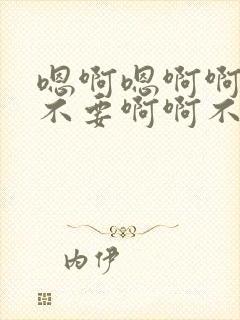 嗯啊嗯啊啊
不要啊啊不
内伊